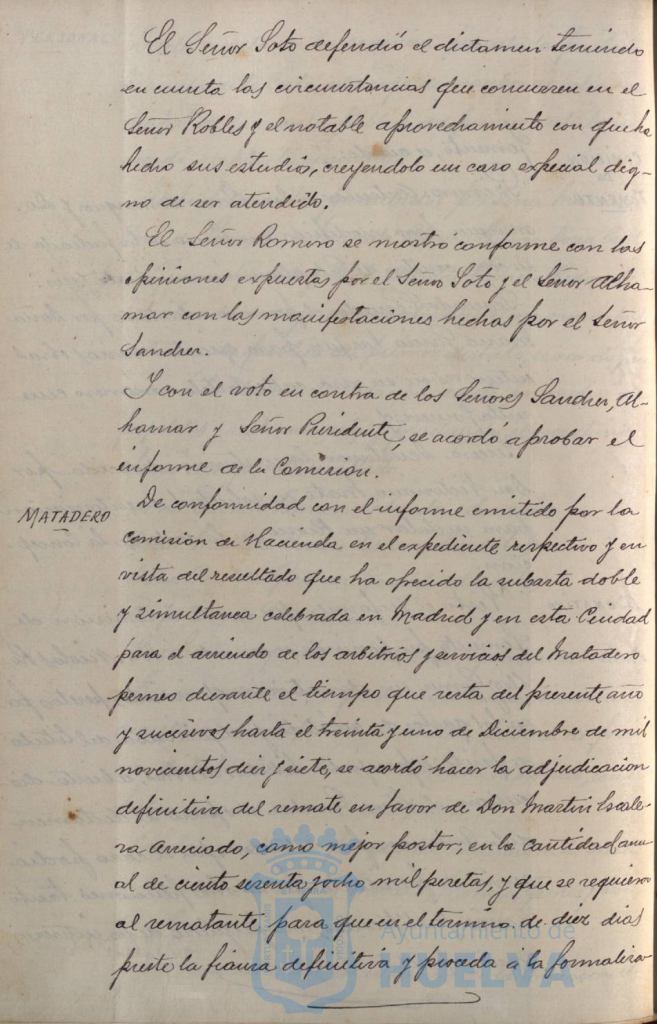 El Señor Soto defendió el dictamen teniendo
en cuenta las circunstancias que concurren en el
Señor Robles y el notable aprovechamiento con que ha
hecho sus estudios, creyendolo un caso especial dig-
no de ser atendido.
El Señor Romero se mostró conforme con las
opiniones expuestas por el Señor Soto y el Señor Alha-
mar con las manifestaciones hechas por el Señor
Sanchez.
Y con el voto en contra de los Señores Sanchez, Al-
hamar y Señor Presidente, se acordó aprobar el
informe de la Comision.
MATADERO
De conformidad con el informe emitido por la
comisión de Hacienda en el expediente respectivo y en
vista del resultado que ha ofrecido la subasta doble
y simultanea celebrada en Madrid y en esta Ciudad
para el arriendo de los arbitrios y servicios del Matadero
perneo durante el tiempo que resta del presente año
y sucesivos hasta el treinta y uno de Diciembre de mil
novecientos diez y siete, se acordó hacer la adjudicacion
definitiva del remate en favor de Don Martin Escale-
ra Arreciado, como mejor postor, en la cantidad anu-
al de ciento sesenta y ocho mil pesetas, y que se requiera
al rematante para que en el termino de diez dias
preste la fianza definitiva y proceda á la formaliza-
Ayuntamiento de
HUELVA